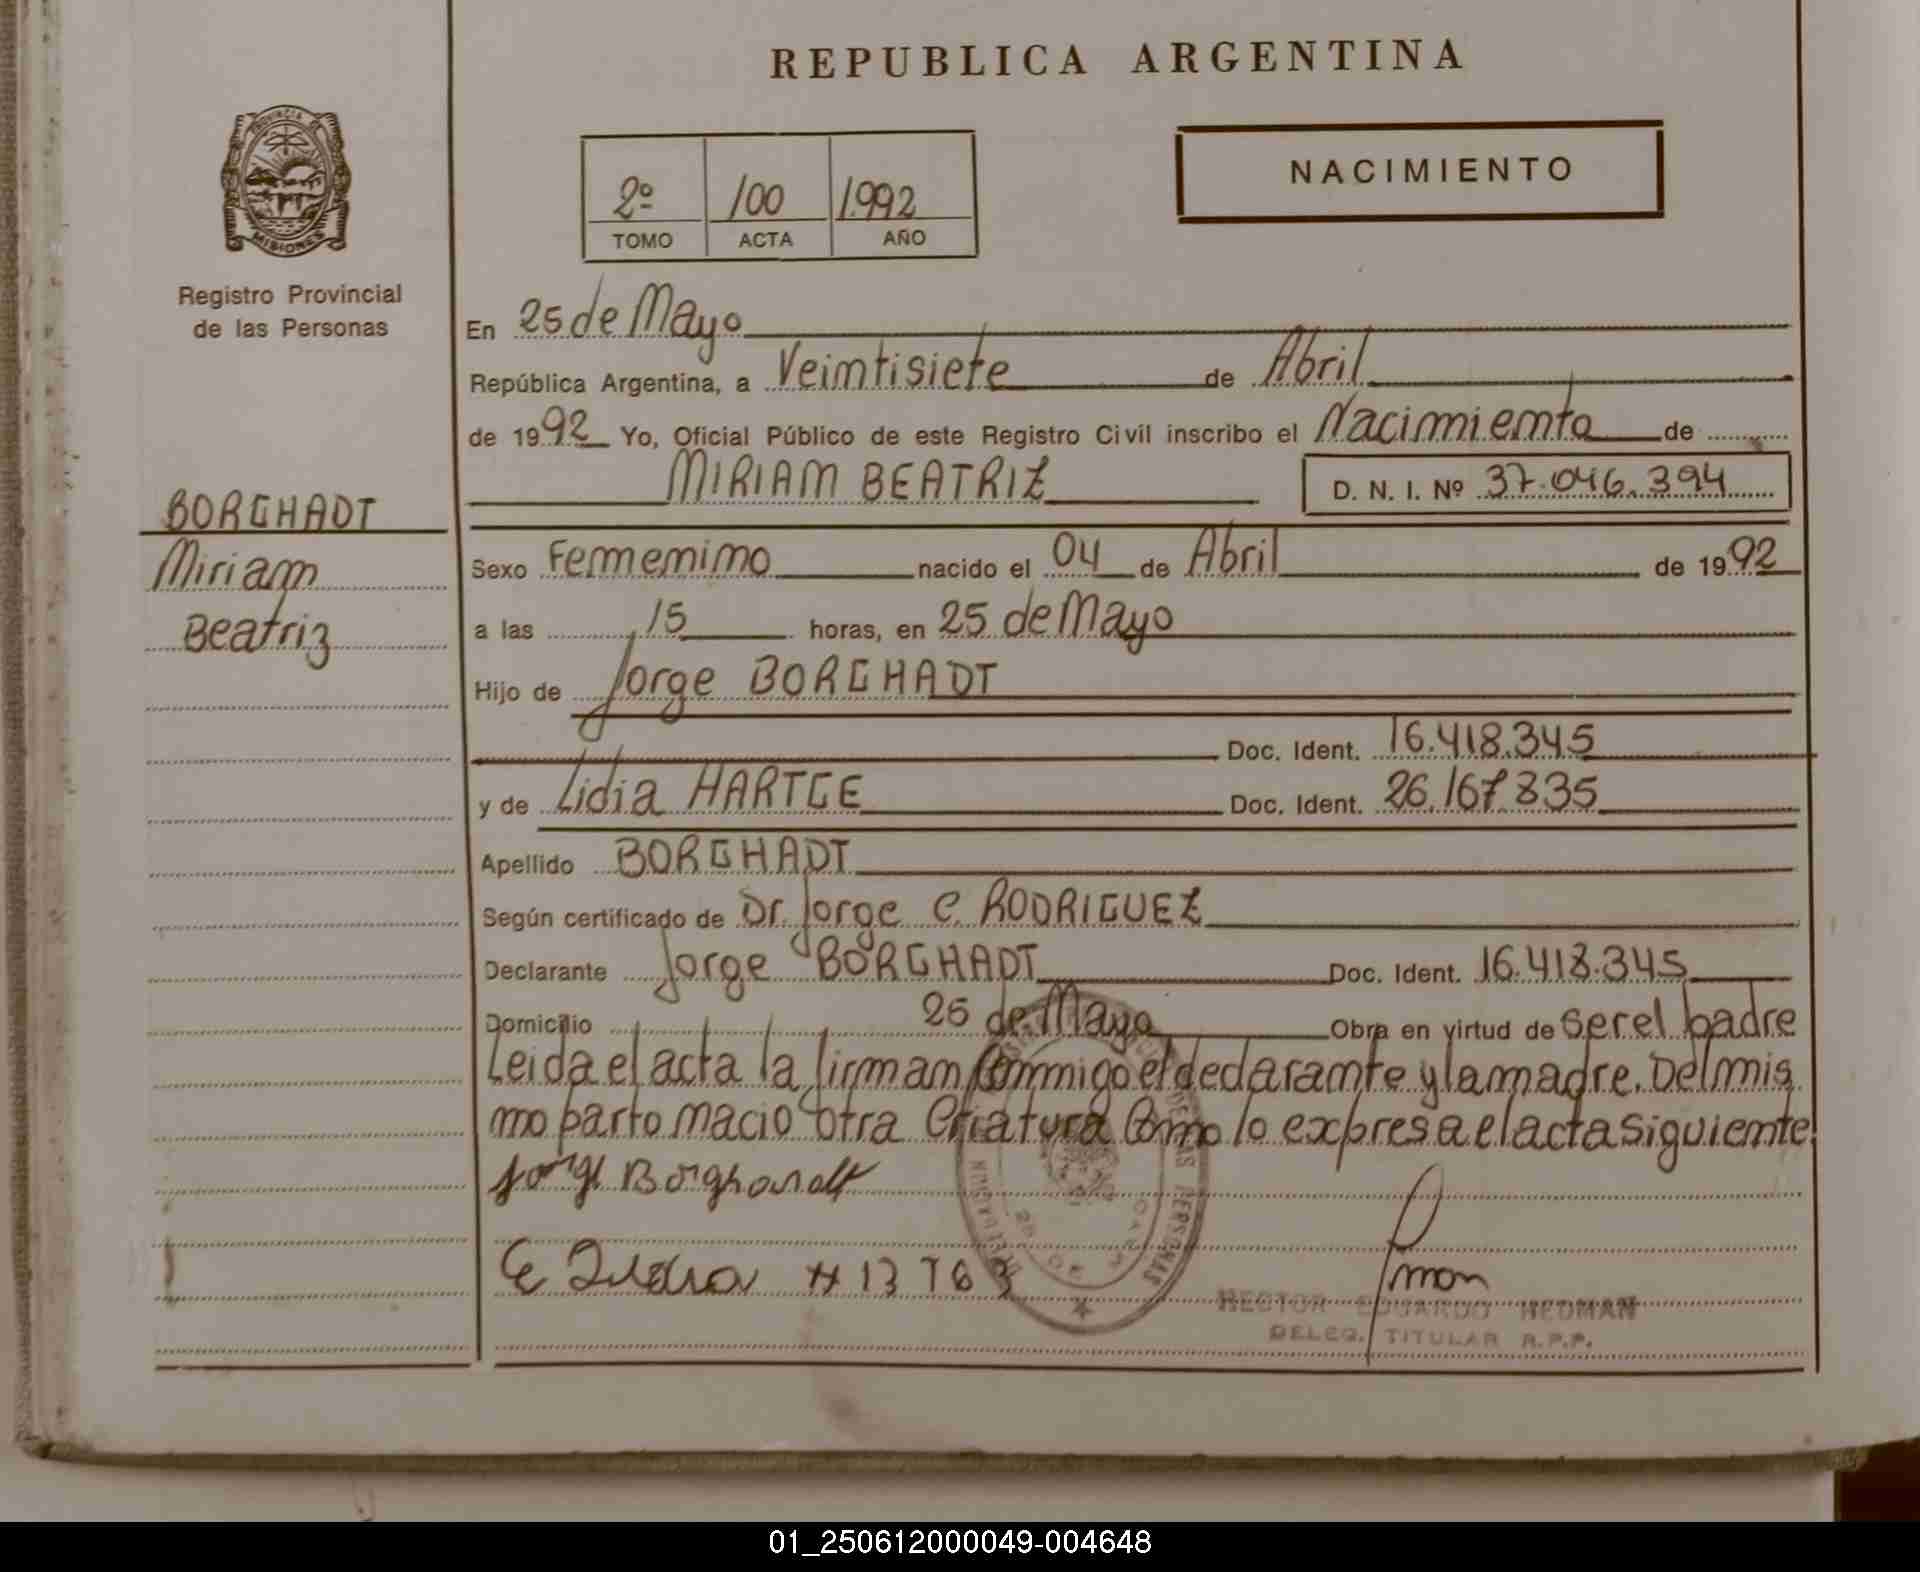 REPUBLICA ARGENTINA
PROVINCIA DE
MISIONES
Registro Provincial
de las Personas
NACIMIENTO
2º 100 1.992
TOMO ACTA AÑO
En 25 de Mayo
República Argentina, a Veintisiete de Abril
de 1992 Yo, Oficial Público de este Registro Civil inscribo el Nacimiento de
MIRIAM BEATRIZ D. N. I. Nº 37.046.394
BORGHADT
Miriam
Beatriz
Sexo Femenino nacido el 04 de Abril de 1992
a las 15 horas, en 25 de Mayo
Hijo de Jorge BORGHADT
Doc. Ident. 16.418.345
y de Lidia HARTGE Doc. Ident. 26.167.835
Apellido BORGHADT
Según certificado de Dr. Jorge C. RODRIGUEZ
Declarante Jorge BORGHADT Doc. Ident. 16.418.345
Domicilio 25 de Mayo Obra en virtud de ser el padre
Leida el acta la firman Conmigo el declarante y la madre. Del mis
mo parto nacio otra Criatura Como lo expresa el acta siguiente
HECTOR EDUARDO HEDMAN
DELEG. TITULAR R.P.P.
01_250612000049-004648